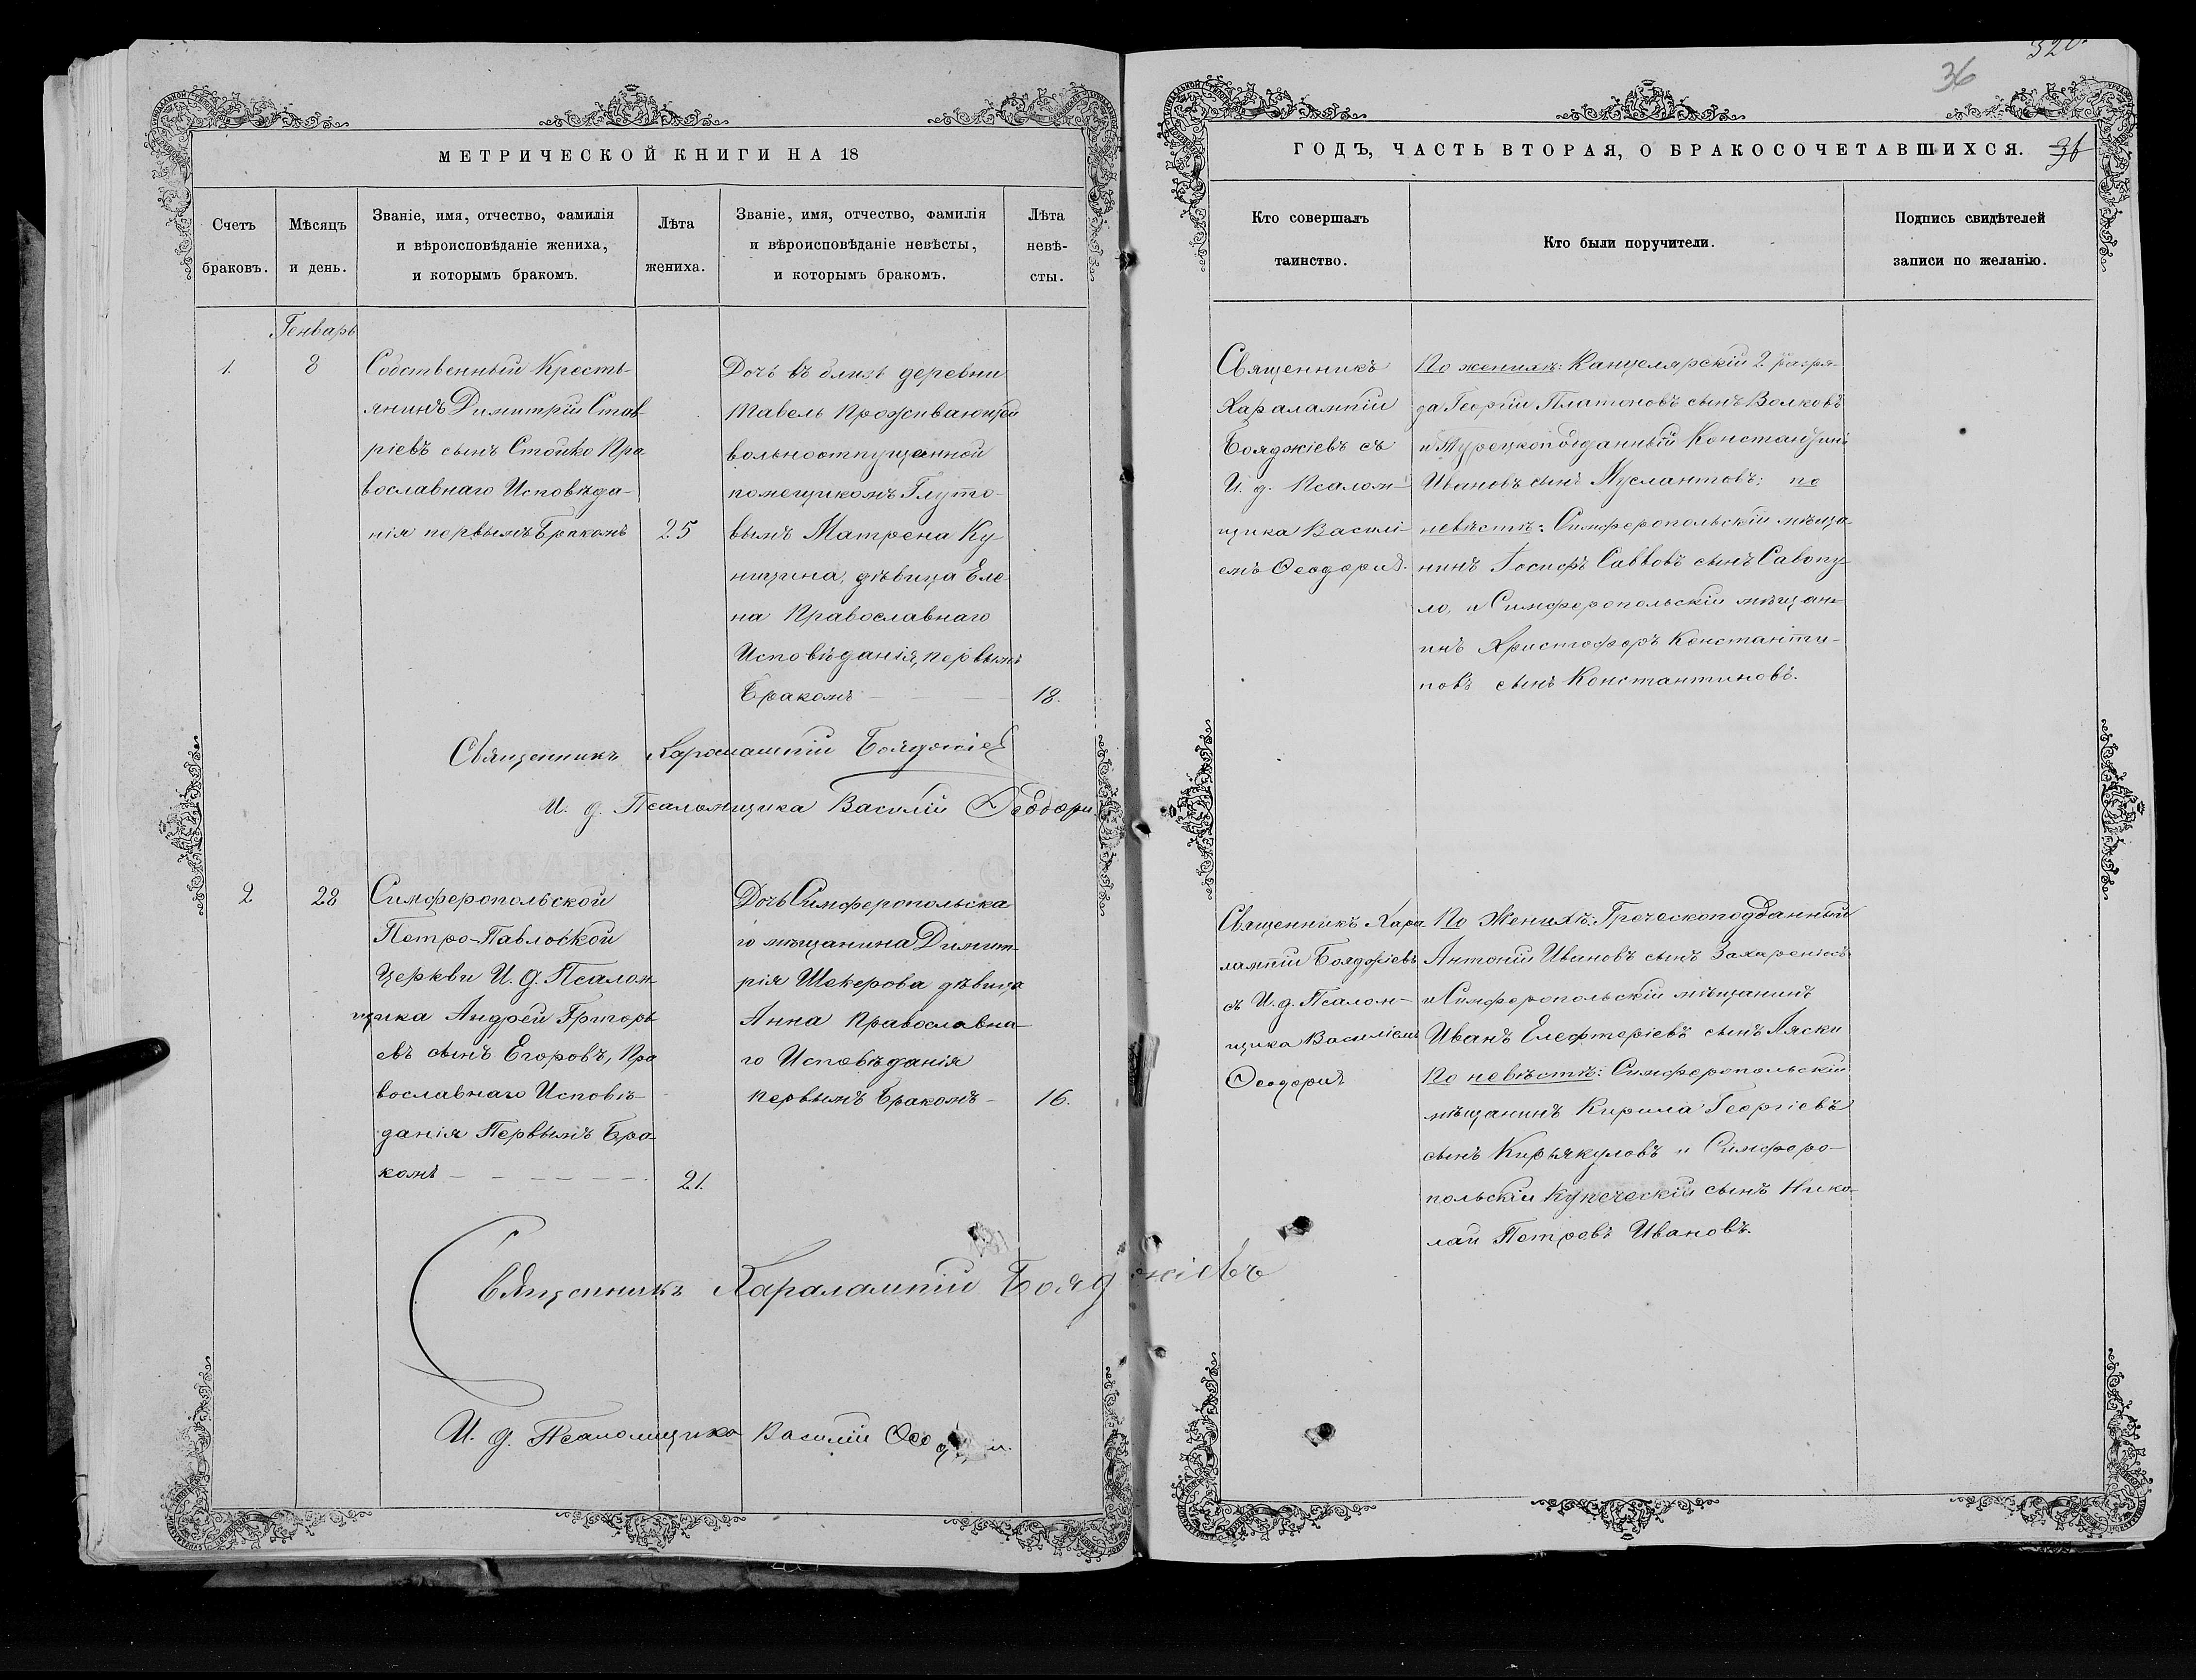 36
МЕТРИЧЕСКОЙ КНИГИ НА 18
Счетъ браковъ.
Мѣсяцъ и день.
Званіе, имя, отчество, фамилія
и вѣроисповѣданіе жениха,
и которымъ бракомъ.
Лѣта
жениха.
Званіе, имя, отчество, фамилія
и вѣроисповѣданіе невѣсты,
и которымъ бракомъ.
Лѣта
невѣ-
сты.
Генварь
1.
8
Собственный Кресть-
янинъ Димитрій Став-
ріевъ сынъ Стойко Пра
вославнаго Исповѣда-
нія первымъ Бракомъ
25
Дочь въ близь деревни
Тавель Проживающей
вольноотпущенной
помещикомъ
вымъ Матрена Ку
дѣвица Еле
на Православнаго
Исповѣданія, первымъ
Бракомъ
18.
Священникъ Харалампій Бояджіев
И. д. Псаломщика Василій Ѳеодори
2
28
Симферопольской
Петро-Павлоской
Церкви И. д. Псалом
щика Андрей Григорь
евъ сынъ Егоровъ, Пра
вославнаго Исповѣ-
данія Первымъ Бра-
комъ
21.
Дочь Симферопольска
го мѣщанина Димит-
рія Шекерова дѣвица
Анна Православна-
го Исповѣданія
первымъ Бракомъ -
16.
Священникъ Харалампій Бояджіевъ
И. д. Псаломщика Василій
ГОДЪ, ЧАСТЬ ВТОРАЯ, О БРАКОСОЧЕТАВШИХСЯ.
36
Кто совершалъ
таинство.
Кто были поручители.
Подпись свидѣтелей
записи по желанію.
Священникъ
Харалампій
Бояджіевъ съ
И. д. Псалом-
щика Василі-
емъ Ѳеодори
По женихѣ: Канцелярскій 2 разря-
да Георгій Платоновъ сынъ Волковъ
и Турецкоподданный Константинъ
Ивановъ сынъ Муслантовъ; по
невѣстѣ: Симферопольскій мѣща-
нинъ Іосифъ Савковъ сынъ Савопу-
ло, и Симферопольскій мѣщан
инъ Христофоръ Константи-
новъ сынъ Константиновъ.
Священникъ Хара
лампій Бояджіевъ
съ И. д. Псалом-
щика Василіемъ
Ѳеодори
По Женихѣ: Греческоподданный
Антоній Ивановъ сынъ
и Симферопольскій мѣщанинъ
Иванъ Елефтеріевъ сынъ Ляски
По невѣстѣ: Симферопольскій
мѣщанинъ Кирила Георгіевъ
сынъ Кирьякуловъ и Симферо-
польскій Купеческій сынъ Нико-
лай Петровъ Ивановъ.